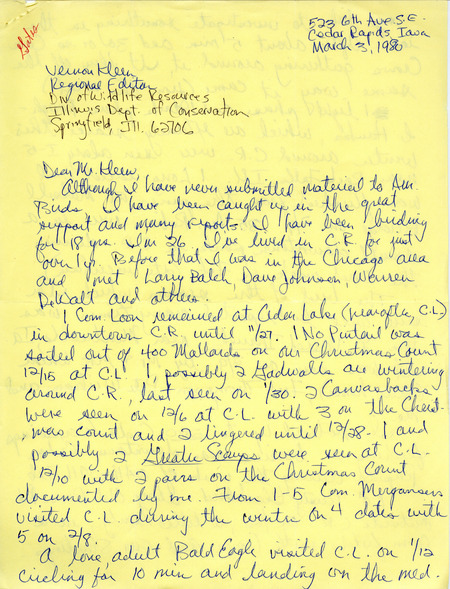 523 6th Ave. S.E.
Cedar Rapids Iowa
March 3, 1980
Vernon Kleen,
Regional Editor
Div. of Wildlife Resources
Illinois Dept. of Conservation
Springfield, Ill. 62706
Dear Mr. Kleen,
Although I have never submitted material to Am.
Birds. I have been caught up in the great
support and many reports. I have been birding
for 18 yrs. I'm 26. I've lived in C.R. for just
over 1 yr. Before that I was in the Chicago area
and met Larry Balch, Dave Johnson, Warren
DeWalt and others.
1 Com. Loon remained at Cedar Lake (hereafter, C.L.)
in downtown C.R. until 11/27. 1 No. Pintail was
sorted out of 400 Mallards on our Christmas Count
12/15 at C.L. 1, possibly 2 Gadwalls are wintering
around C.R., last seen on 1/30. 2 Canvasbacks
were seen on 12/6 at C.L. with 3 on the Christ-
mas count and 2 lingered until 12/28. 1 and
possibly 2 Greater Scaups were seen at C.L.
12/10 with 2 pairs on the Christmas Count
documented by me. From 1-5 Com. Mergansers
visited C.L. during the winter on 4 dates with
5 on 2/8.
A lone, adult Bald Eagle visited C.L. on 1/12
circling for 10 min and landing on the med.